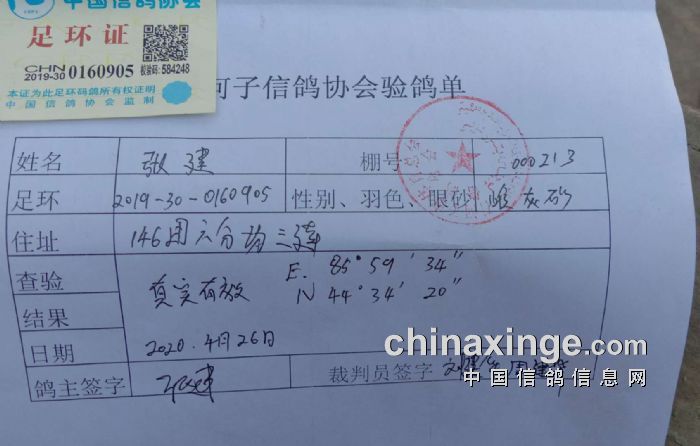 中国信鸽协会
足环证
CHN
2019-30 0160905 校验码: 584248
本证为此足环码鸽所有权证明
中国信鸽协会监制
河子信鸽协会验鸽单
姓名 张建 棚号 000213
足环 2019-30-0160905 性别、羽色、眼砂 雌灰砂
住址 146团六分场三连
查验 E. 85°59'34"
结果 真实有效 N 44°34'20"
日期 2020.4月26日
鸽主签字 张建 裁判员签字
chinaxinge.com
中国信鸽信息网